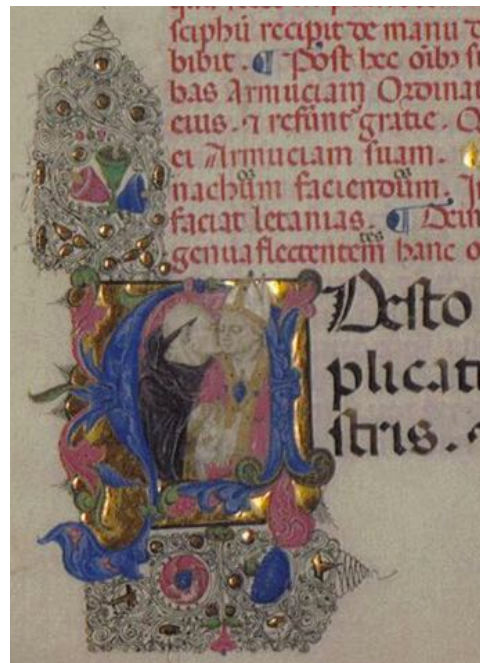 sciphū recipit de manu
bibit. ¶ Post hec oībꝫ
bas Armuciam Ordinat
eius. ⁊ refūnt gratie.
ei Armuciam suam.
os os
nachum faciendum.
faciat letanias. ¶ Dein
tes
genuaflectentem hanc o
ADesto
plicati
stris. ⁊